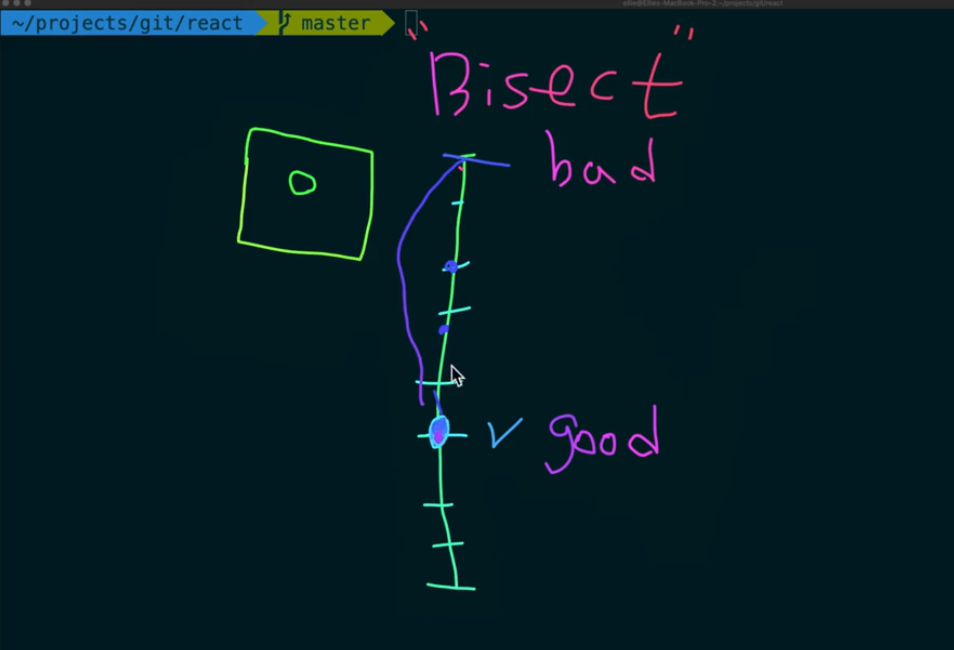 ellie@Ellies-MacBook-Pro-2:~/projects/git/react
~/projects/git/react master
"Bisect"
bad
✓ good